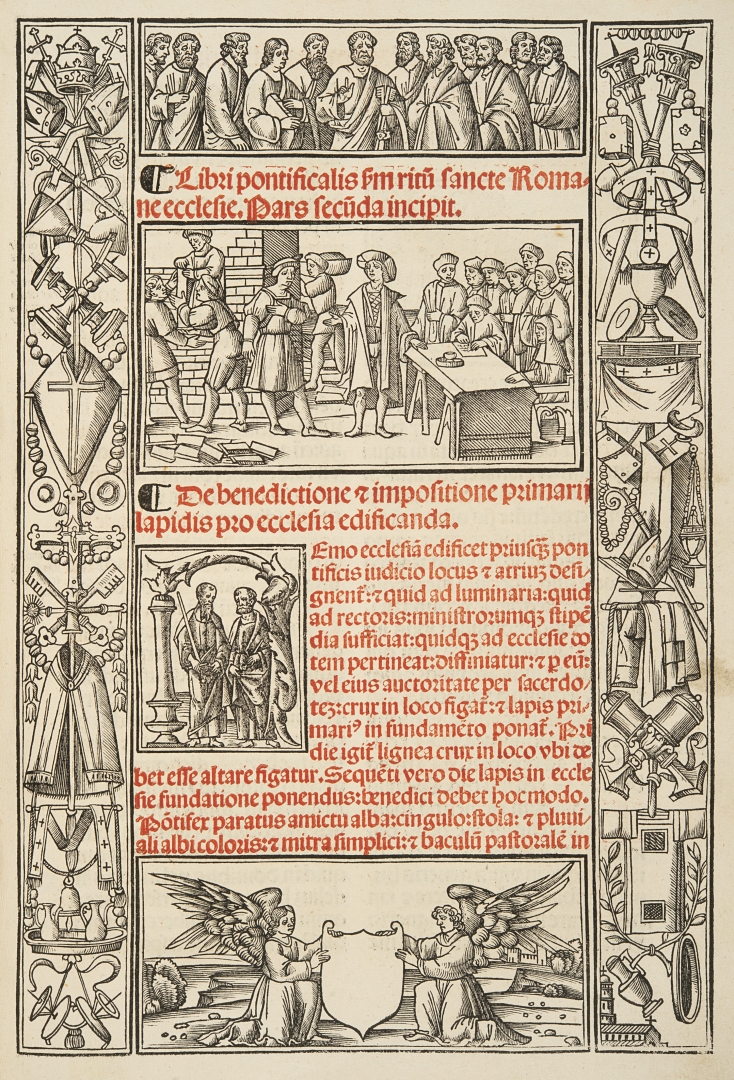 ¶ Libri pontificalis ẜm ritū sancte Roma-
ne ecclesie. Pars secūda incipit.
¶ De benedictione ⁊ impositione primarij
lapidis pro ecclesia edificanda.
NEmo ecclesiā edificet priusq̄ꝫ pon
tificis iudicio locus ⁊ atriuꝫ desi-
gnent̄: ⁊ quid ad luminaria: quid
ad rectoris: ministrorumqꝫ stipē
dia sufficiat: quidqꝫ ad ecclesie do
tem pertineat: diffiniatur: ⁊ ꝑ eū:
vel eius auctoritate per sacerdo-
teꝫ: crux in loco figat̄: ⁊ lapis pri-
mariꝰ in fundamēto ponat̄. Pri
die igit̄ lignea crux in loco vbi de
bet esse altare figatur. Sequēti vero die lapis in eccle
sie fundatione ponendus: benedici debet hoc modo.
Pōtifex paratus amictu alba: cingulo: stola: ⁊ pluui-
ali albi coloris: ⁊ mitra simplici: ⁊ baculū pastoralē in